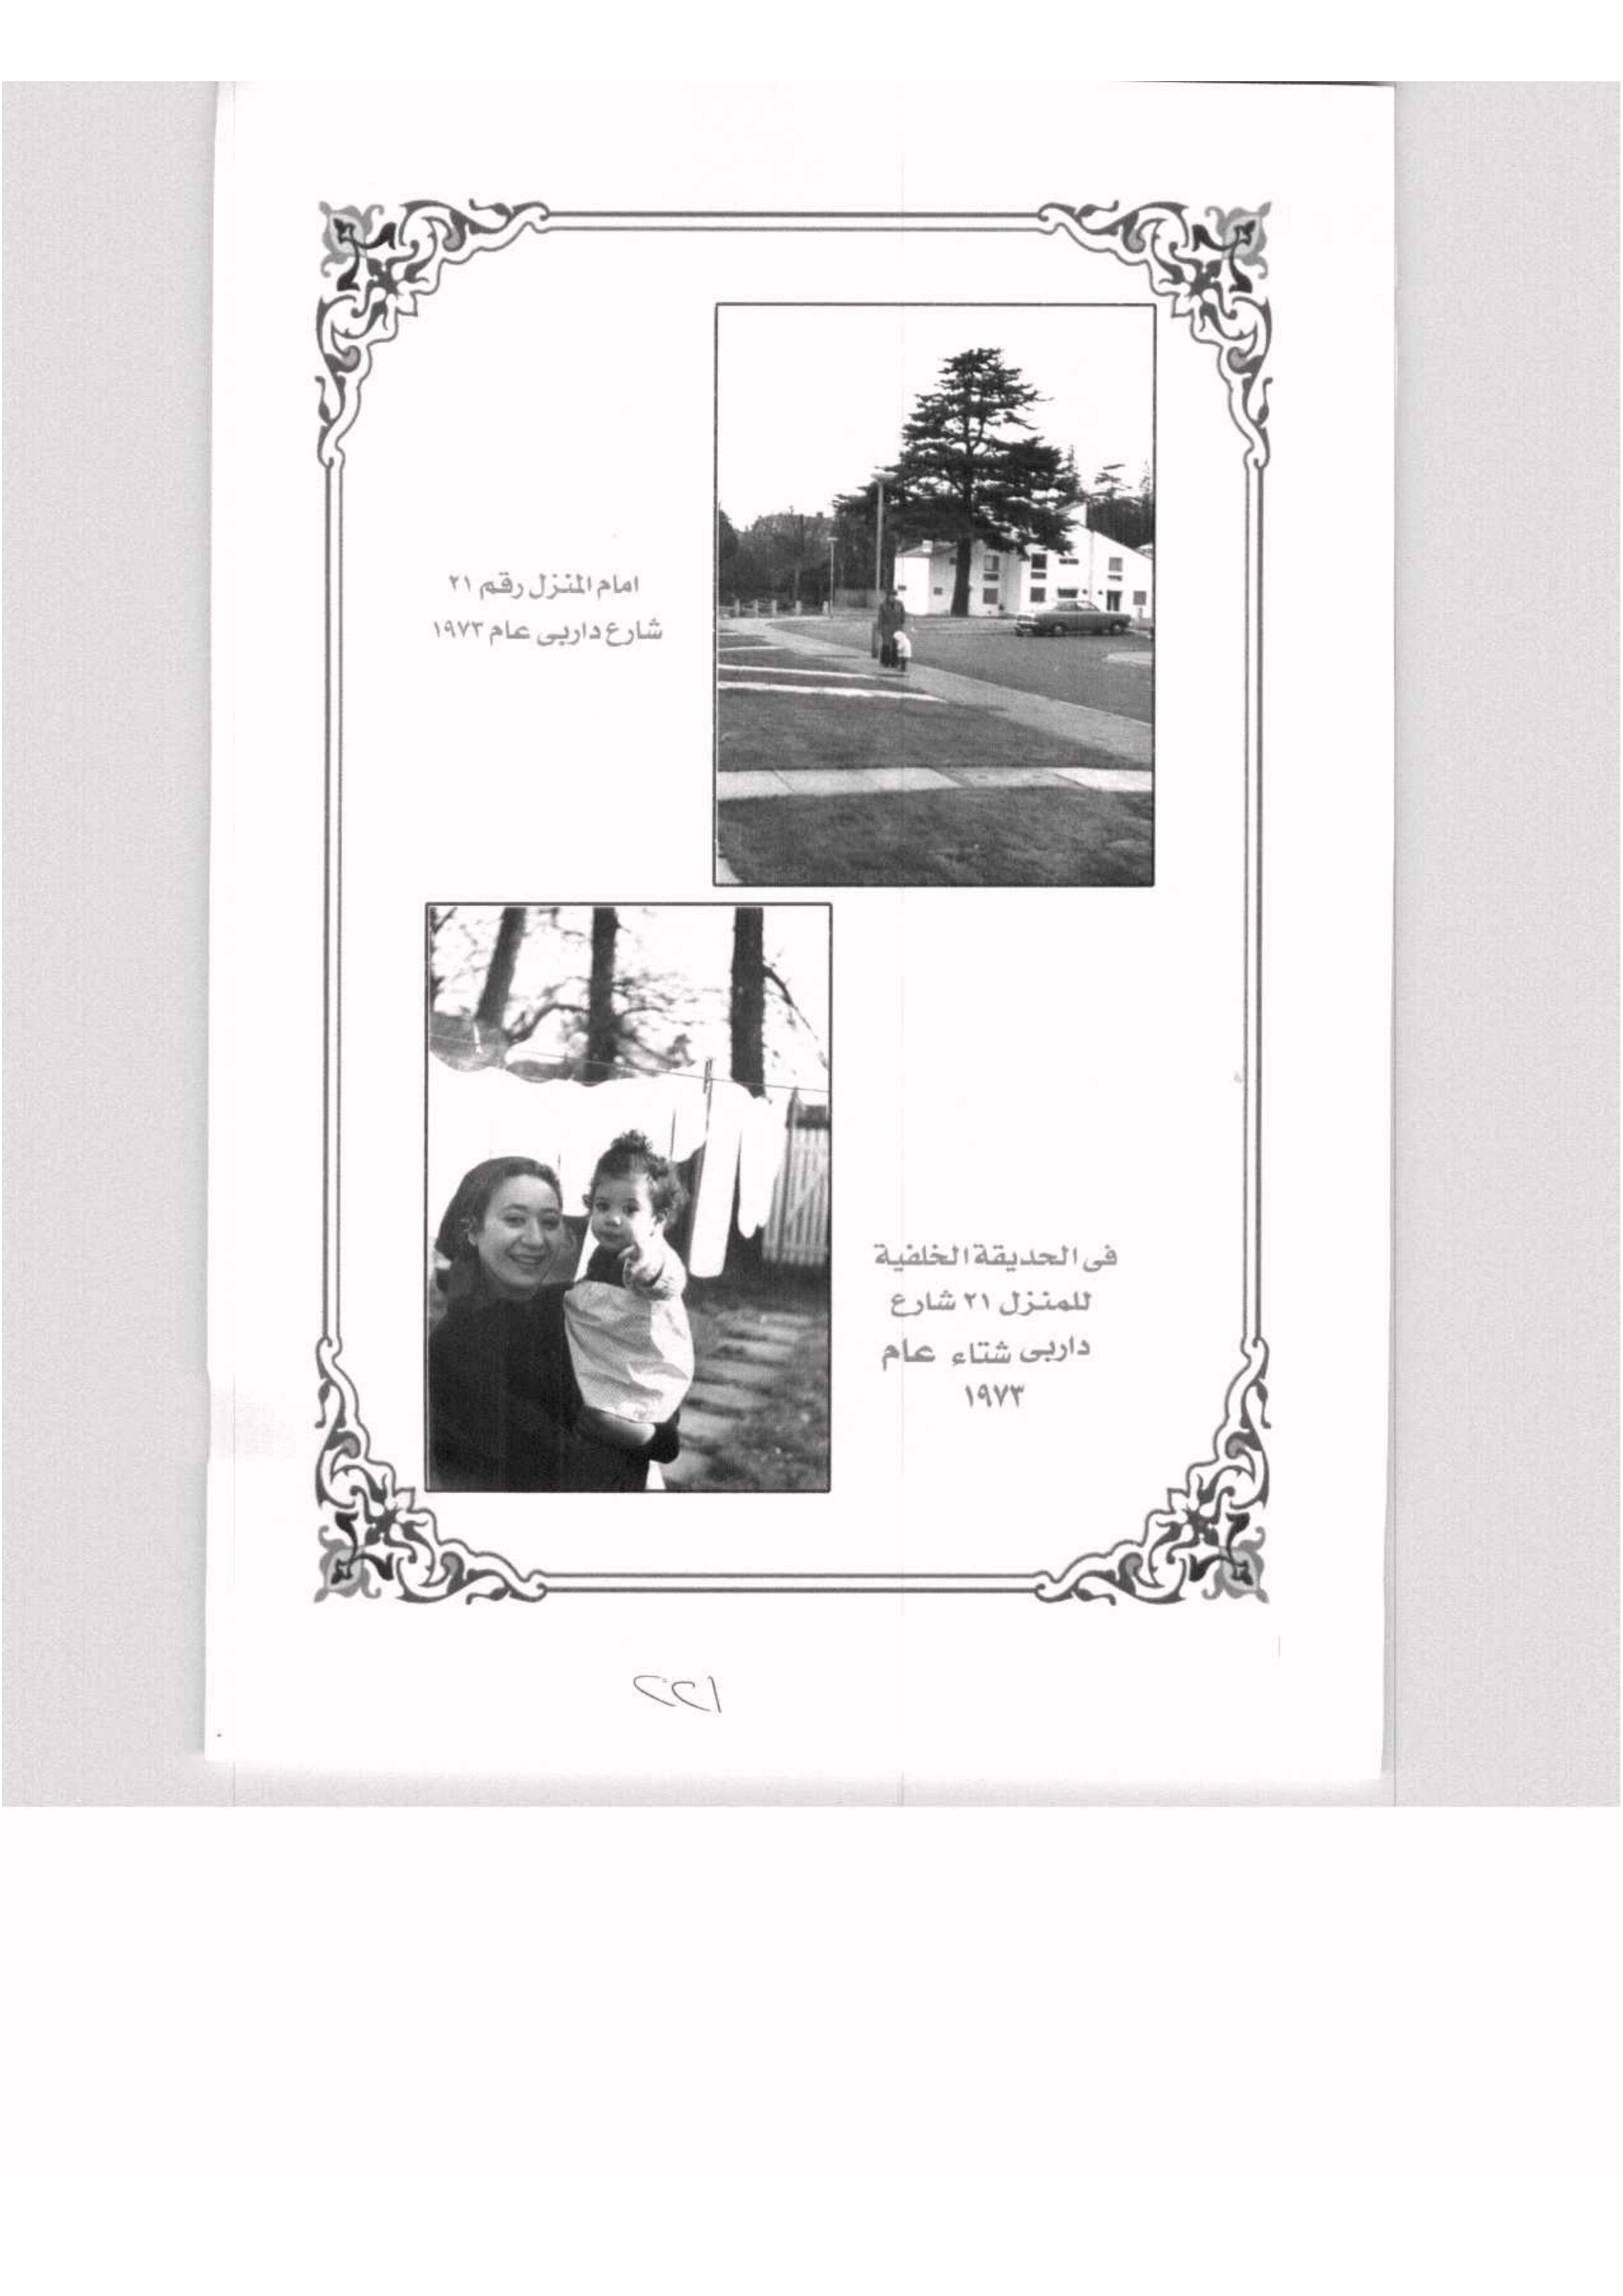 امام المنزل رقم ٢١
شارع داربى عام ١٩٧٣
فى الحديقة الخلفية
للمنزل ٢١ شارع
داربى شتاء عام
١٩٧٣